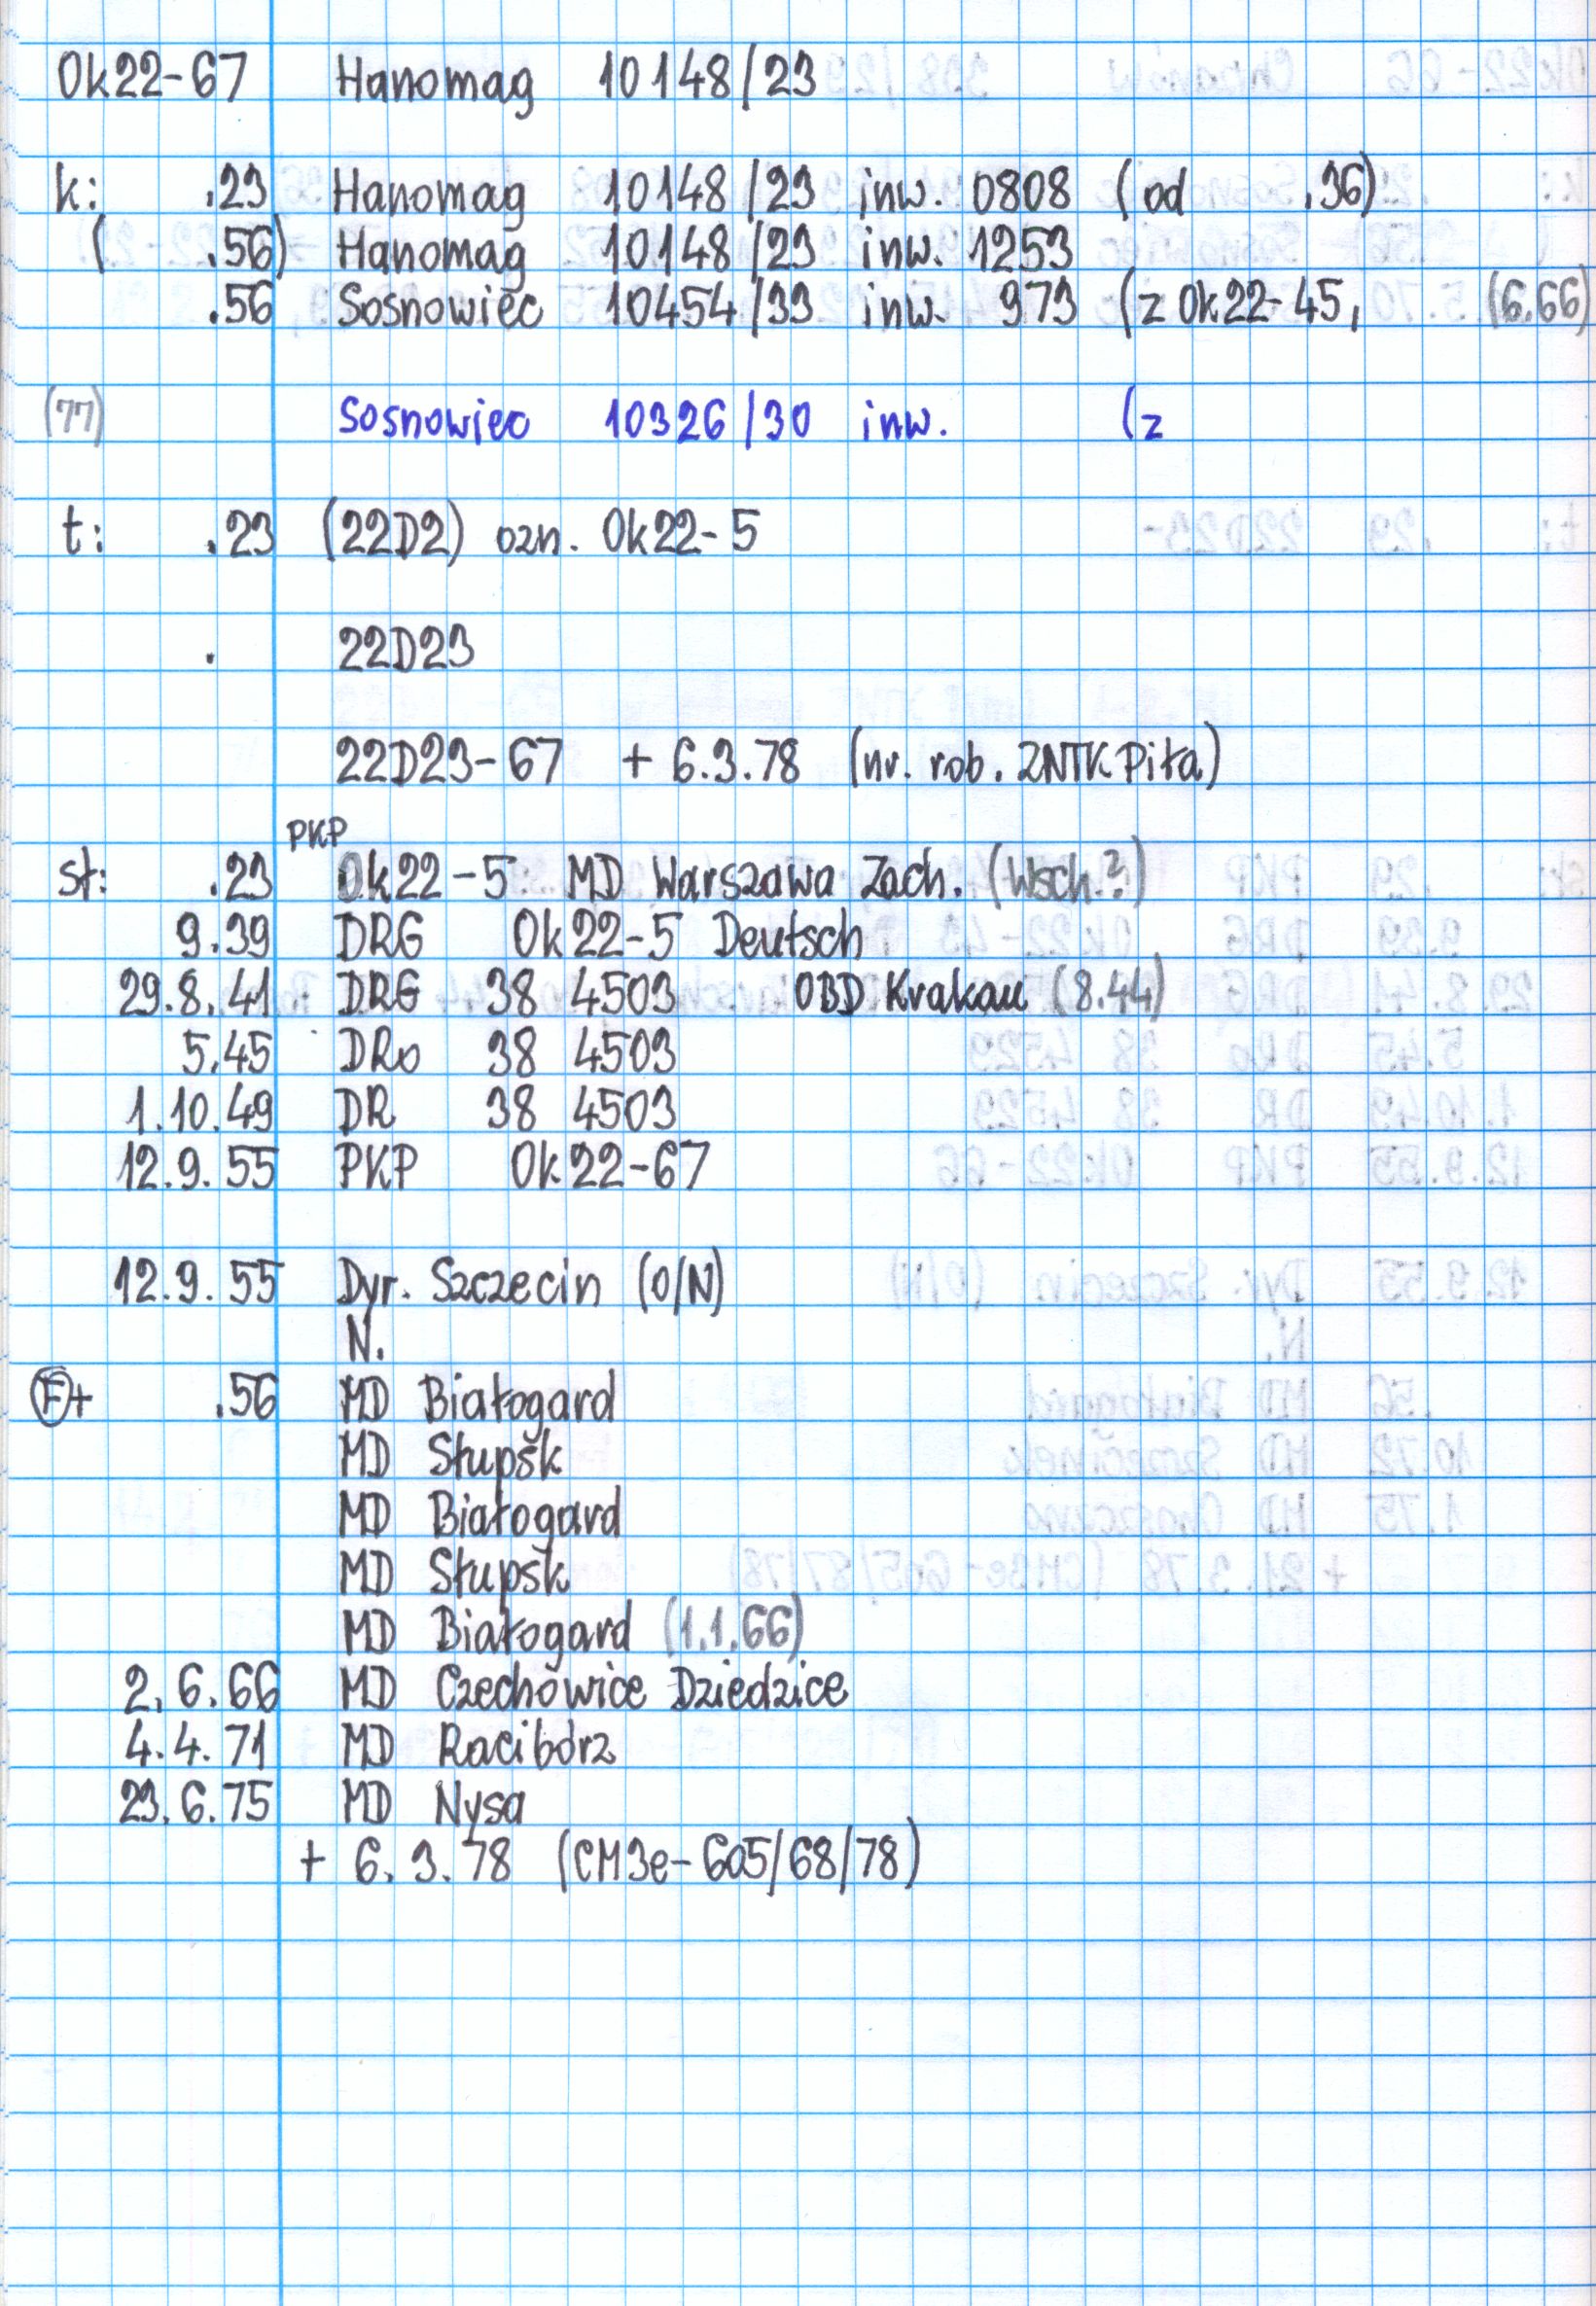 Ok22-67 Hanomag 10148/23
k: .23 Hanomag 10148/23 inw. 0808 (od .36)
( .56) Hanomag 10148/23 inw. 1253
.56 Sosnowiec 10454/33 inw. 973 (z Ok22-45, (6.66)
(77) Sosnowiec 10326/30 inw. (z
t: .23 (22D2) ozn. Ok22-5
. 22D23
22D23-67 + 6.3.78 (nr. rob. ZNTK Piła)
PKP
st: .23 Ok22-5 MD Warszawa Zach. (Wsch.?)
9.39 DRG Ok22-5 Deutsch
29.8.41 DRG 38 4503 OBD Krakau (8.44)
5.45 DRo 38 4503
1.10.49 DR 38 4503
12.9.55 PKP Ok22-67
12.9.55 Dyr. Szczecin (O/N)
N.
F+ .56 MD Białogard
MD Słupsk
MD Białogard
MD Słupsk
MD Białogard (1.1.66)
2.6.66 MD Czechowice Dziedzice
4.4.71 MD Racibórz
23.6.75 MD Nysa
+ 6.3.78 (CM3e-605/68/78)